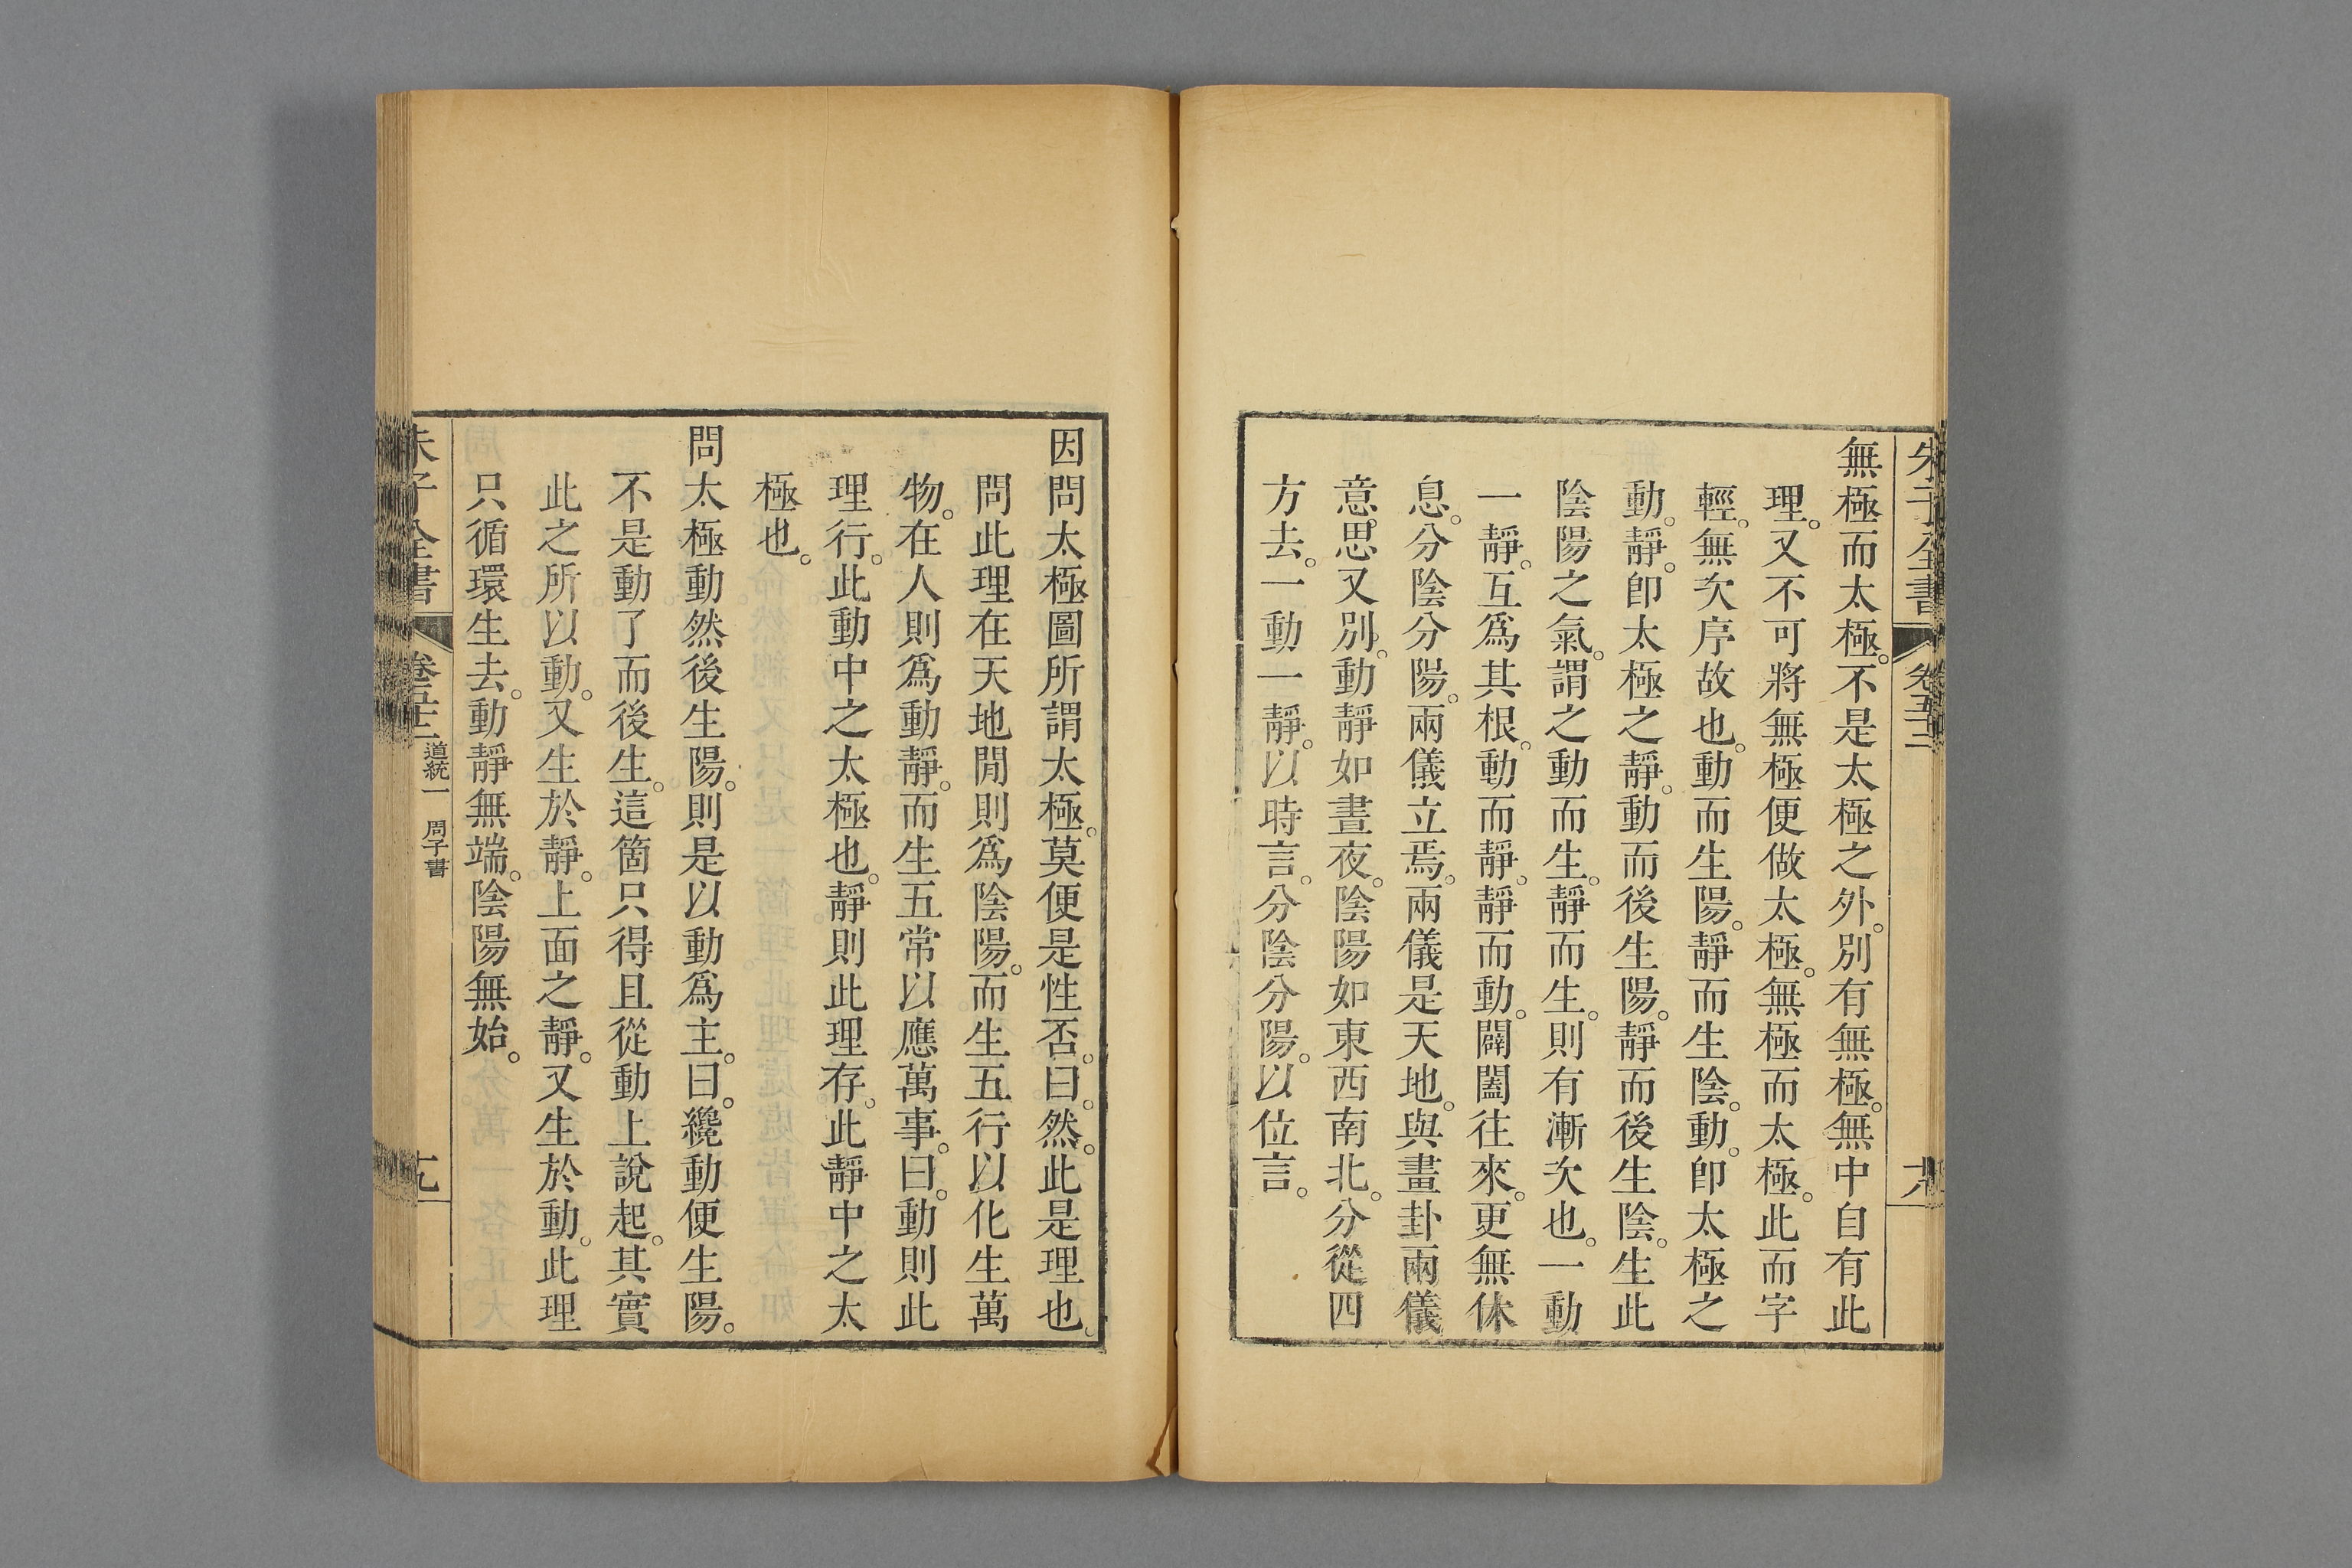 朱子全書 卷五十二 十八
無極而太極。不是太極之外。別有無極。無中自有此
理。又不可將無極便做太極。無極而太極。此而字
輕。無次序故也。動而生陽。靜而生陰。動。卽太極之
動。靜。卽太極之靜。動而後生陽。靜而後生陰。生此
陰陽之氣。謂之動而生。靜而生。則有漸次也。一動
一靜。互爲其根。動而靜。靜而動。闢闔往來。更無休
息。分陰分陽。兩儀立焉。兩儀是天地。與畫卦兩儀
意思又別。動靜如晝夜。陰陽如東西南北。分從四
方去。一動一靜。以時言。分陰分陽。以位言。
因問太極圖所謂太極。莫便是性否。曰。然。此是理也。
問此理在天地閒則爲陰陽。而生五行以化生萬
物。在人則爲動靜。而生五常以應萬事。曰。動則此
理行。此動中之太極也。靜則此理存。此靜中之太
極也。
問太極動然後生陽。則是以動爲主。曰。纔動便生陽。
不是動了而後生。這箇只得且從動上說起。其實
此之所以動。又生於靜。上面之靜。又生於動。此理
只循環生去。動靜無端。陰陽無始。
朱子全書 卷五十二 道統一 周子書 十九